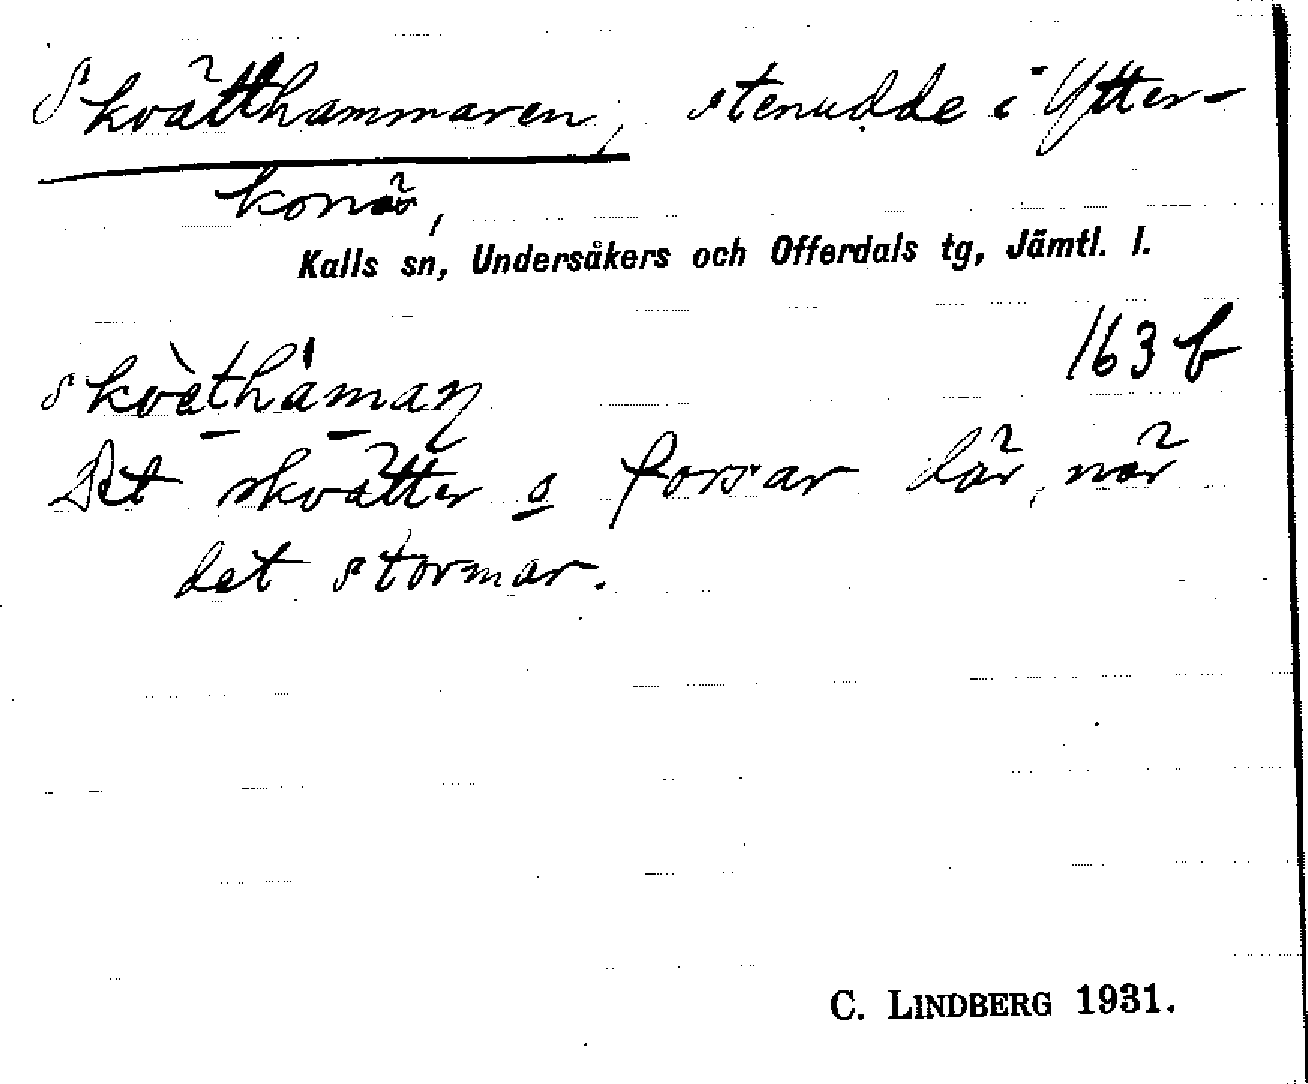 Skvätthammaren, stenudde i Ytter-
konä,
Kalls sn, Undersåkers och Offerdals tg, Jämtl. l.
163 b
skvὰthámaɳ
Det skvätter o forsar där, när
det stormar.
C. LINDBERG 1931.